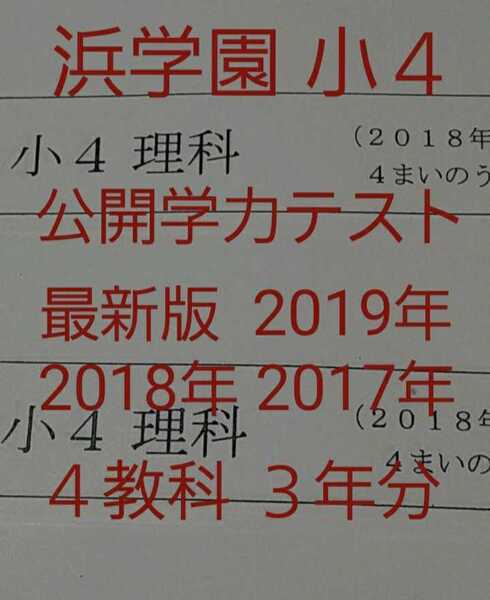 浜学園 小４
小４ 理科
（２０１８年
４まいのう
公開学力テスト
最新版 2019年
2018年 2017年
小４ 理科
（２０１８年
４まいの
４教科 ３年分